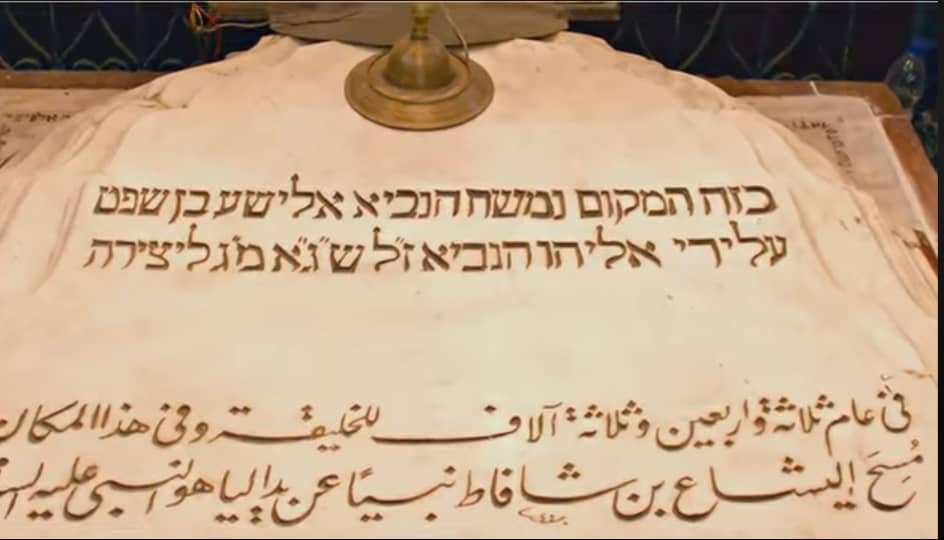 בזה המקום נמשח הנביא אלישע בן שפט
על ידי אליהו הנביא ז״ל ש״ג״א מ״ג ליצירה
في عام ثلاثة وأربعين وثلاثة آلاف للخليقة وفي هذا المكان
مُسِحَ إليشاع بن شافاط نبيًا عن يد إلياهو النبي عليه